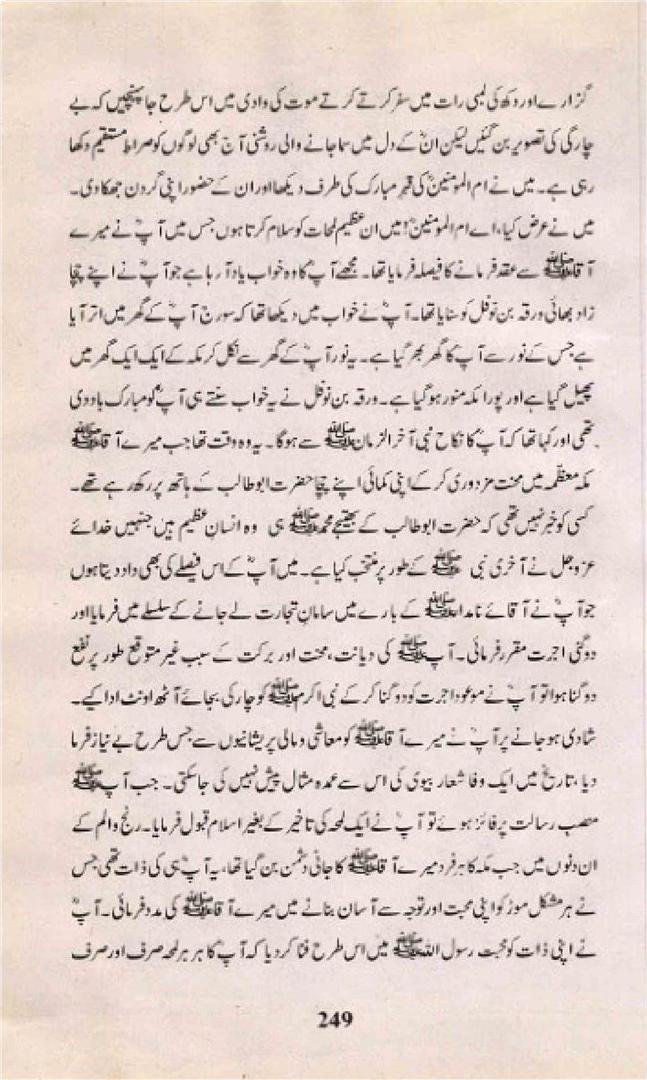 گزارے اور دکھ کی لمبی رات میں سفر کرتے کرتے موت کی وادی میں اس طرح جا پہنچیں کہ بے
چارگی کی تصویر بن گئیں لیکن انؓ کے دل میں سما جانے والی روشنی آج بھی لوگوں کو صراط مستقیم دکھا
رہی ہے۔ میں نے ام المومنینؓ کی قبرِ مبارک کی طرف دیکھا اور ان کے حضور اپنی گردن جھکا دی۔
میں نے عرض کیا، اے ام المومنینؓ! میں ان عظیم لمحات کو سلام کرتا ہوں جس میں آپؓ نے میرے
آقا ﷺ سے عقد فرمانے کا فیصلہ فرمایا تھا۔ مجھے آپؓ کا وہ خواب یاد آ رہا ہے جو آپؓ نے اپنے چچا
زاد بھائی ورقہ بن نوفل کو سنایا تھا۔ آپؓ نے خواب میں دیکھا تھا کہ سورج آپؓ کے گھر میں اتر آیا
ہے جس کے نور سے آپؓ کا گھر بھر گیا ہے۔ یہ نور آپؓ کے گھر سے نکل کر مکہ کے ایک ایک گھر میں
پھیل گیا ہے اور پورا مکہ منور ہو گیا ہے۔ ورقہ بن نوفل نے یہ خواب سنتے ہی آپؓ کو مبارک باد دی
تھی اور کہا تھا کہ آپؓ کا نکاح نبی آخر الزمان ﷺ سے ہو گا۔ یہ وہ وقت تھا جب میرے آقا ﷺ
مکہ معظّمہ میں محنت مزدوری کر کے اپنی کمائی اپنے چچا حضرت ابو طالب کے ہاتھ پر رکھ رہے تھے۔
کسی کو خبر نہیں تھی کہ حضرت ابو طالب کے بھتیجے محمد ﷺ ہی وہ انسانِ عظیم ہیں جنہیں خدائے
عزوجل نے آخری نبی ﷺ کے طور پر منتخب کیا ہے۔ میں آپؓ کے اس فیصلے کی بھی داد دیتا ہوں
جو آپؓ نے آقائے نامدار ﷺ کے بارے میں سامانِ تجارت لے جانے کے سلسلے میں فرمایا اور
دوگنی اجرت مقرر فرمائی۔ آپ ﷺ کی دیانت، محنت اور برکت کے سبب غیر متوقع طور پر نفع
دوگنا ہوا تو آپؓ نے موعود اجرت کو دوگنا کر کے نبی اکرم ﷺ کو چار کی بجائے آٹھ اونٹ ادا کیے۔
شادی ہو جانے پر آپؓ نے میرے آقا ﷺ کو معاشی و مالی پریشانیوں سے جس طرح بے نیاز فرما
دیا، تاریخ میں ایک وفا شعار بیوی کی اس سے عمدہ مثال پیش نہیں کی جا سکتی۔ جب آپ ﷺ
منصب رسالت پر فائز ہوئے تو آپؓ نے ایک لمحہ کی تاخیر کے بغیر اسلام قبول فرمایا۔ رنج و الم کے
ان دنوں میں جب مکہ کا ہر فرد میرے آقا ﷺ کا جانی دشمن بن گیا تھا، یہ آپؓ ہی کی ذات تھی جس
نے ہر مشکل موڑ کو اپنی محبت اور توجہ سے آسان بنانے میں میرے آقا ﷺ کی مدد فرمائی۔ آپؓ
نے اپنی ذات کو محبت رسول اللہ ﷺ میں اس طرح فنا کر دیا کہ آپؓ کا ہر ہر لمحہ صرف اور صرف
249